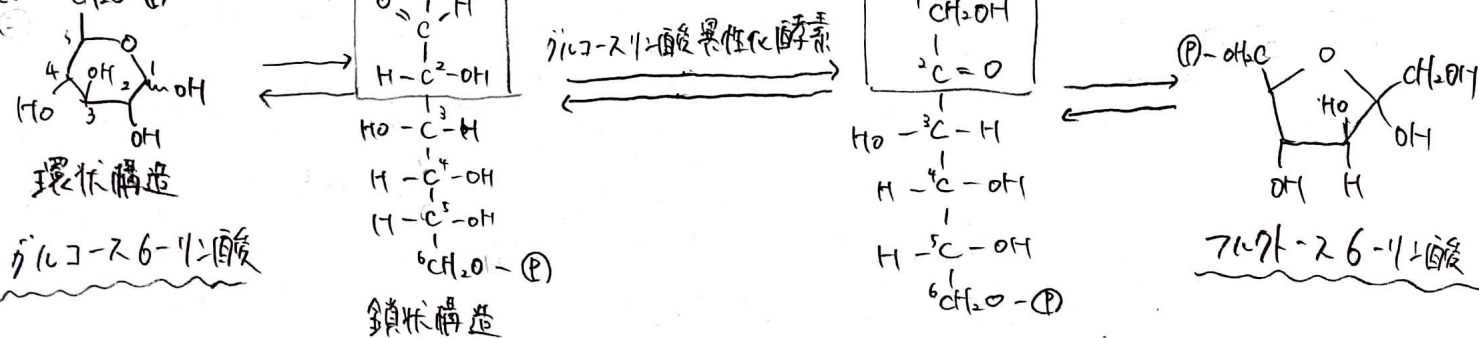 CH₂O Ⓟ
5
O
4
OH
2
1
OH
HO
3
OH
環状構造
グルコース6-リン酸
O
H
C
H-C²-OH
HO-C³-H
H-C⁴-OH
H-C⁵-OH
⁶CH₂O-Ⓟ
鎖状構造
グルコースリン酸異性化酵素
¹CH₂OH
²C=O
HO-³C-H
H-⁴C-OH
H-⁵C-OH
⁶CH₂O-Ⓟ
Ⓟ-OH₂C
O
CH₂OH
HO
OH
OH H
フルクトース6-リン酸